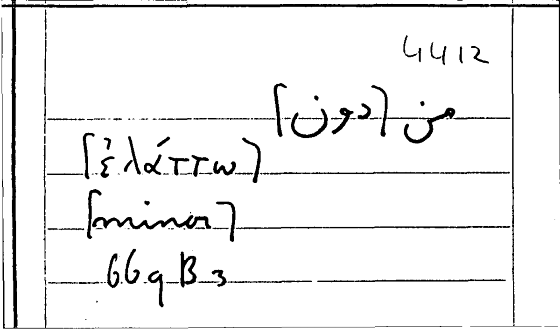 4412
من [دون]
[ἐλάττω]
[minor]
669 B 3